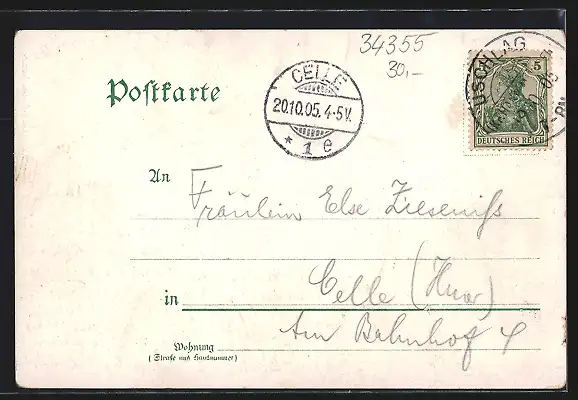 34355
30,-
Postkarte
CELLE
20.10.05.4-5V.
* 1 e
USCHLAG
5
DEUTSCHES REICH
An Fräulein Else Zieseniß
in Celle (Hann)
Am Bahnhof 4
Wohnung
(Straße und Hausnummer)